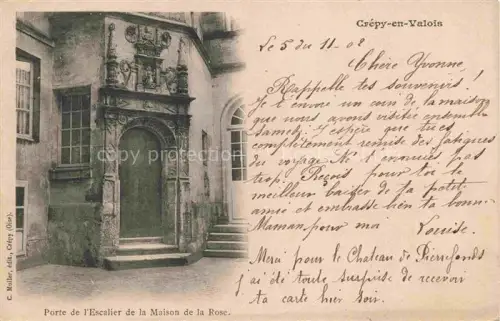 Crépy-en-Valois
Le 5 du 11-02
Chère Yvonne
Rappelle tes souvenirs!
Je t'envoie un coin de la maison
que nous avons visitée ensemble
samedi. J'espère que tu es
complètement remise des fatigues
du voyage. Ne t'ennuies pas
trop. Reçois pour toi le
meilleur baiser de ta petite
amie et embrasse bien ta bonne-
Maman pour moi
Louise.
Merci pour le Chateau de Pierrefonds
j'ai été toute surprise de recevoir
ta carte hier soir.
Porte de l'Escalier de la Maison de la Rose.
C. Muller, édit., Crépy (Oise).
copyright protected